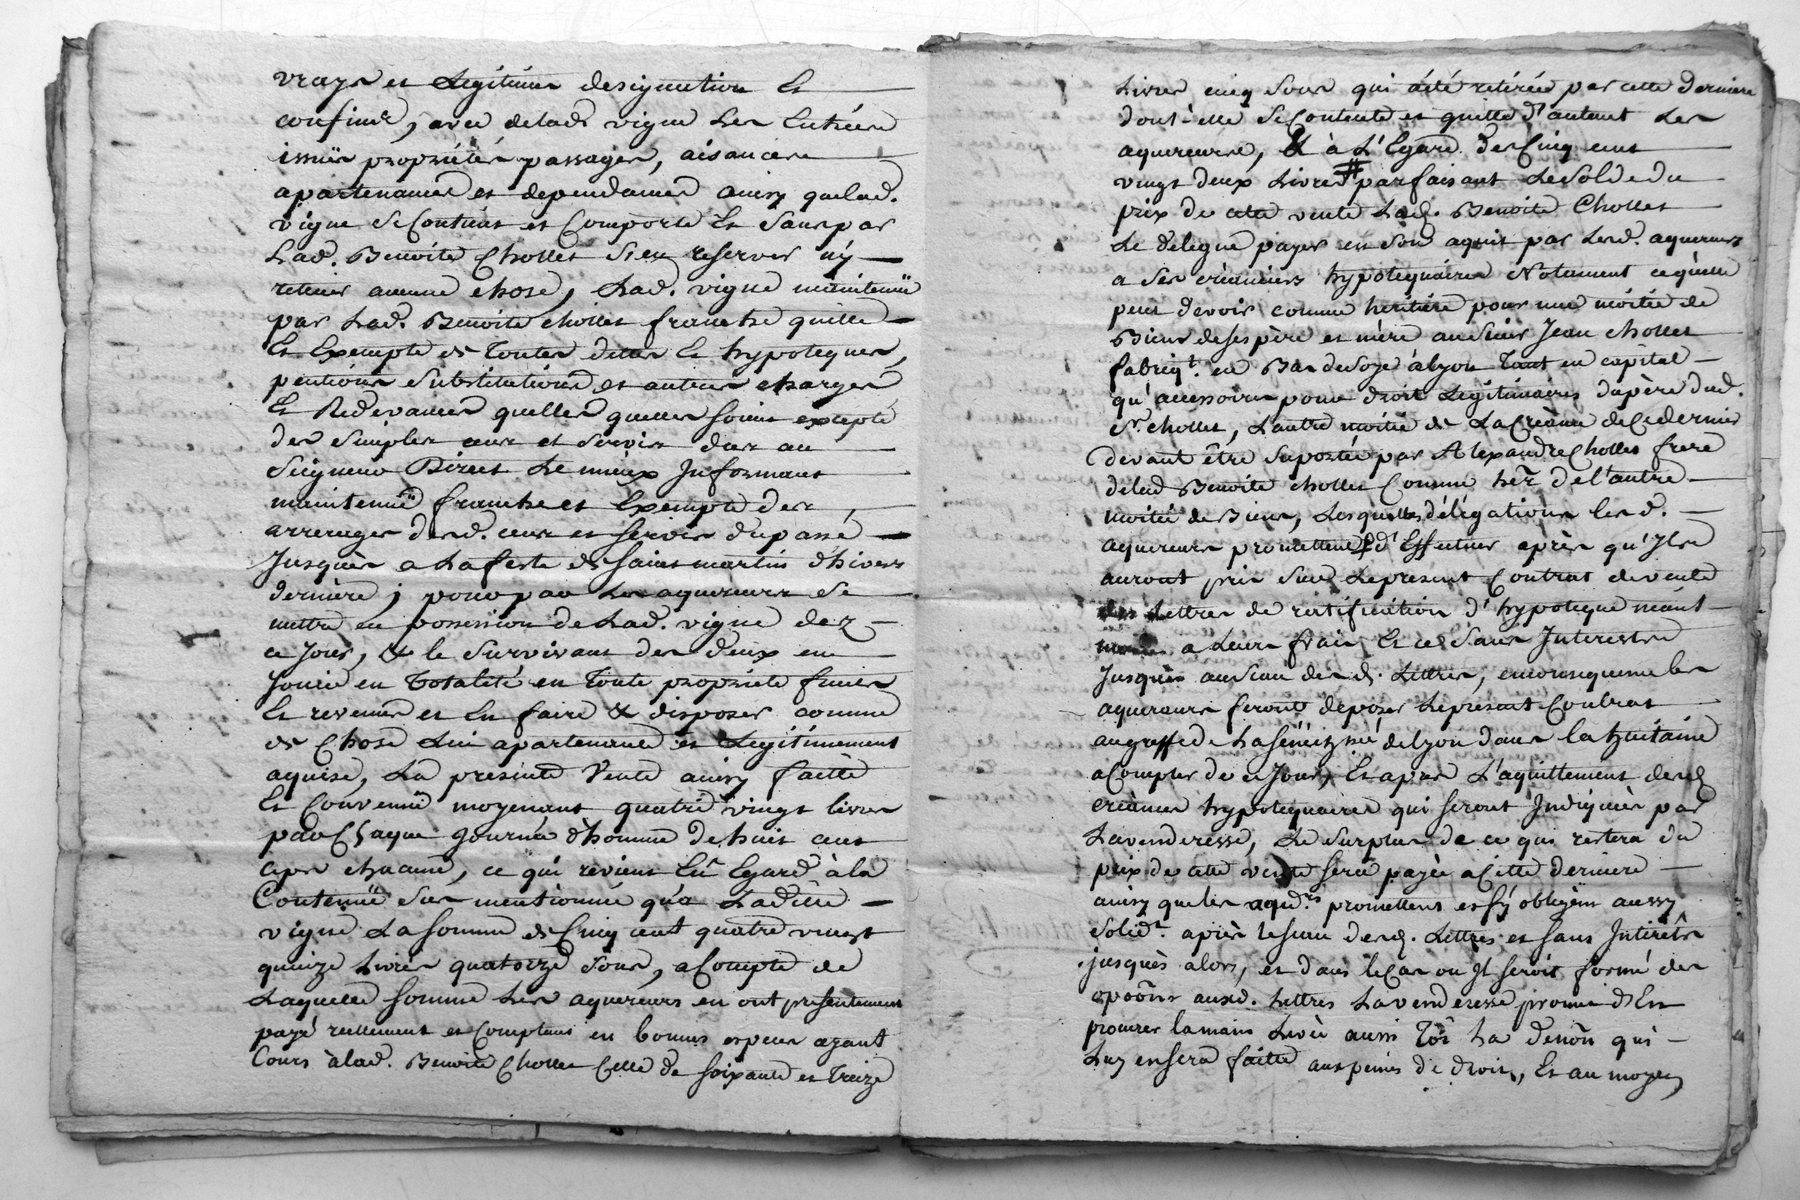 vraye et Legitime designation Et
confins, avec delad. vigne Les Entrées
issües proprietés passages, aisances
apartenances et dependances ainsy quelad.
vigne Se Contient et Comporte Et Sans par
Lad. Benoite Chollet S'en reserver n'y
retenir aucune chose, Lad. vigne maintenüe
par Lad. Benoite chollet franche quitte
Et Exempte de Toutes dettes Et hypoteques,
pentions Substitutions et autres charges
Et Redevances quelles quelles soint excepté
des Simples cens et Servis dus au
Seigneur Direct Le mieux Informant
maintenüe franche et Exempte des
arrerages desd. cens et servis du passé
Jusques a La feste de saint martin d'hivers
derniere, pouvpar Les aquereurs Se
mettre en possession de Lad. vigne dez
ce Jour, & le Survivant des deux en
Jouir en Totalité en Toute proprieté fruits
Et revenus et En faire & disposer comme
de Chose Lui apartenant et Legitimement
aquise, La presente Vente ainsy faitte
Et Convenüe moyenant quatre vingt livres
par Chaque journée d'homme de huit cent
ceps chacune, ce qui revient Eu Egard à la
Contenüe Sus mentionnée qu'a Laditte
vigne La somme de Cinq cent quatre vingt
quinze Livres quatorze Sous, a Compte de
Laquelle somme Les aquereurs en ont presentement
payé reellement et Comptant en bonnes especes ayant
Cours à lad. Benoite Chollet Celle de soixante et Treize
Livres cinq Sous qui a été retirée par cette derniere
dont elle Se Contente et quitte d'autant Les
aquereurs, & à L'Egard des Cinq cent
vingt deux Livres # parfaisant Le Solde du
prix de cette vente Lad. Benoite Chollet
Le delegue payer en Son aquit par Lesd. aquereurs
a Ses créanciers hypotequaires Notament ce qu'elle
peut devoir comme heritière pour une moitié de
Biens de ses père et mère au Sieur Jean chollet
fabriqt. en Bas de Soye à lyon Tant en capital
qu'accessoires pour droits Legitimaires du père dud.
Sr. chollet, L'autre moitié de La Créance de Ce dernier
devant être Suportée par Alexandre Chollet frere
delad Benoite chollet Comme her. de l'autre
moitié de Biens, Lesquelles délégations lesd.
aquereurs promettent d'Effectuer après qu'Ils
auront pris Sur Le present Contrat de vente
des Lettres de ratification d'hypoteque
a Leurs frais Et ce Sans Interests
Jusques au Seau desd. Lettres,
aquereurs feront deposer Le present Contrat
au greffe de La Sénéchssée de lyon dans la huitaine
a Compter de ce Jour, Et après L'aquittement desd
créances hypotequaires qui seront Indiquées par
La venderesse, Le Surplus de ce qui restera du
prix de cette vente sera payée a Cette derniere
ainsy que les aqurs. promettent et S'y obligent aussy
Solidt. après le Seau desd. Lettres et sans Intérêts
jusques alors, et dans le Cas ou Il seroit formé des
opoôns auxd. Lettres La venderesse promet d'En
procurer la main Levée aussi Tôt La denôn qui
Luy en sera faitte aux peines de droit, Et au moyen